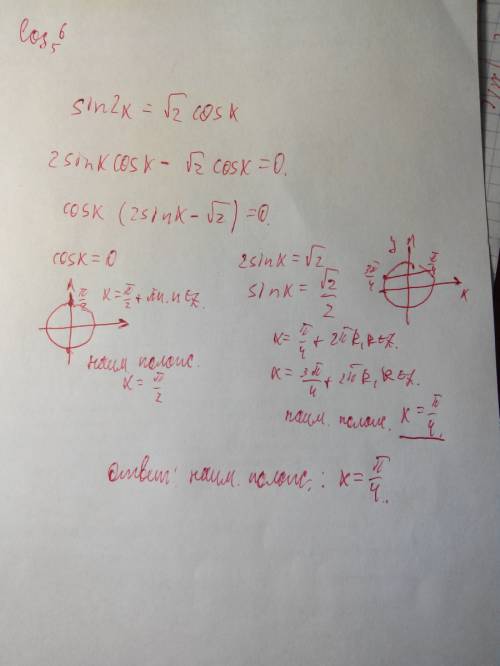 cos 6
5
sin2x = √2 cosx
2sinxcosx - √2 cosx = 0.
cosx (2sinx - √2) = 0.
cosx = 0
π/2
x = π/2 + πn, n ∈ Z.
наим. полож.
x = π/2
2sinx = √2
sinx = √2/2
y
3π/4
π/4
x
x = π/4 + 2πk, k ∈ Z.
x = 3π/4 + 2πk, k ∈ Z.
наим. полож. x = π/4.
Ответ: наим. полож.: x = π/4.